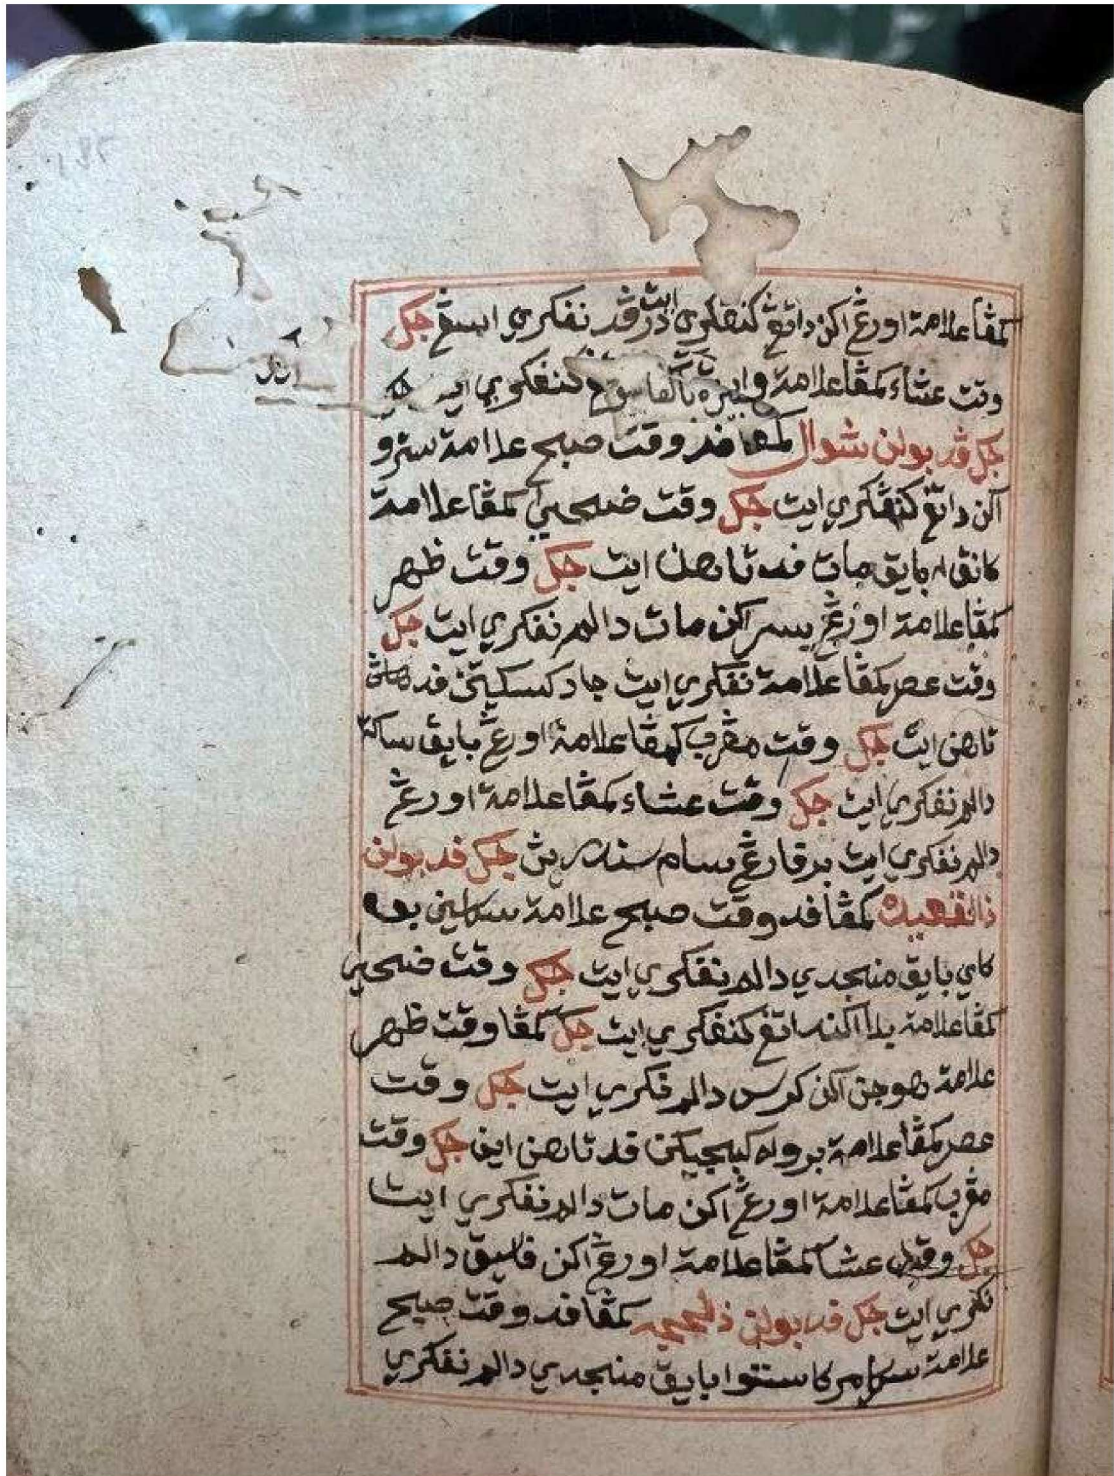 كمڤا علامة اورڠ اكن داتڠ كنڤكري ايت در ڤد نڤكري اسيڠ جكل
وقت عشاء كمڤا علامة كنڤكري ايت
جكل ڤد بولن شوال كمڤا ڤد وقت صبح علامة سترو
اكن داتڠ كنڤكري ايت جكل وقت ضحى كمڤا علامة
كانق٢ بايق مات ڤد تاهن ايت جكل وقت ظهر
كمڤا علامة اورڠ بسر اكن مات دالم نڤكري ايت جكل
وقت عصر كمڤا علامة نڤكري ايت جاد كسكيتن ڤد
تاهن ايت جكل وقت مغرب كمڤا علامة اورڠ بايق ساكت
دالم نڤكري ايت جكل وقت عشاء كمڤا علامة اورڠ
دالم نڤكري ايت برڤارڠ سام سنديرين جكل ڤد بولن
ذالقعيده كمڤا ڤد وقت صبح علامة سكلين بوه
كاي بايق منجدي دالم نڤكري ايت جكل وقت ضحى
كمڤا علامة بلا اكن داتڠ كنڤكري ايت جكل كمڤا وقت ظهر
علامة هوجن اكن كرس دالم نڤكري ايت جكل وقت
عصر كمڤا علامة براوله كبجيكن ڤد تاهن اين جكل وقت
مغرب كمڤا علامة اورڠ اكن مات دالم نڤكري ايت
جكل وقت عشا كمڤا علامة اورڠ اكن ڤاسيق دالم
نڤكري ايت جكل ڤد بولن ذالحجيه كمڤا ڤد وقت صبح
علامة بايق منجدي دالم نڤكري